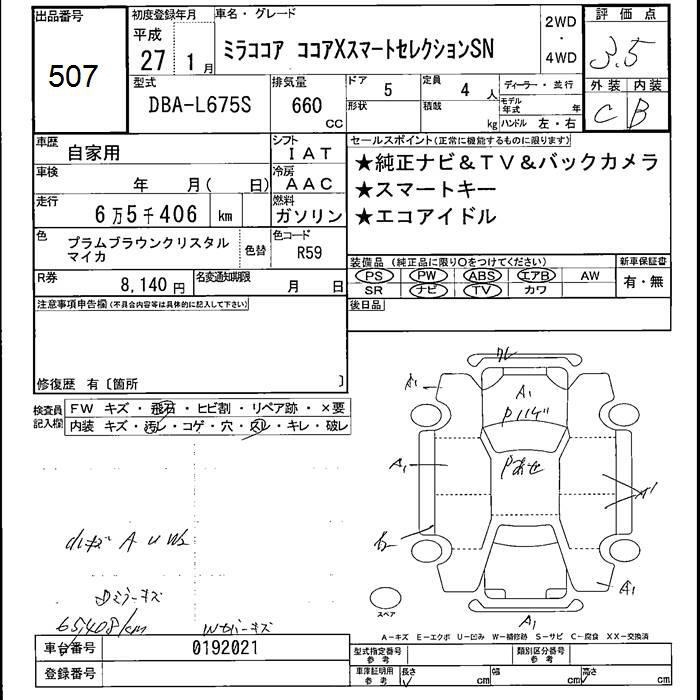 出品番号
507
初度登録年月
平成
27年 1月
車名・グレード
ミラココア ココアXスマートセレクションSN
2WD
・
4WD
評価点
3.5
外装 内装
C B
型式
DBA-L675S
排気量
660
CC
ドア
5
形状
定員
4人
積載
kg
ディーラー・並行
モデル年式 年
ハンドル 左・右
車歴
自家用
シフト
IAT
車検
年 月( 日)
冷房
AAC
走行
6万5千406 km
燃料
ガソリン
色
プラムブラウンクリスタル
マイカ
色替
色コード
R59
R券
8,140円
名変通知期限
月 日
セールスポイント(正常に機能するものに限ります)
★純正ナビ&TV&バックカメラ
★スマートキー
★エコアイドル
装備品(純正品に限り○をつけてください)
PS PW ABS エアB AW
SR ナビ TV カワ
新車保証書
有・無
後日品
注意事項申告欄(不具合内容等は具体的に記入して下さい)
修復歴 有〔箇所 〕
検査員
記入欄
FW キズ・飛石・ヒビ割・リペア跡・×要
内装 キズ・汚レ・コゲ・穴・スレ・キレ・破レ
A1
A1
Pハゲ
A1
Pあせ
A1
A1
スペア
A U W2
Dミラーキズ
65,408/km
A-キズ E-エクボ U-凹み W-補修跡 S-サビ C-腐食 XX-交換済
車台番号
0192021
登録番号
型式指定番号
参考
類別区分番号
参考
車庫証明用
参考
長さ cm
幅 cm
高さ cm